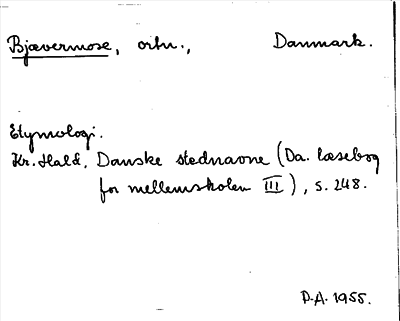 Bjævermose, ortn., Danmark.
Etymologi.
Kr. Hald, Danske stednavne (Da. læsebog
for mellemskolen III), s. 248.
P.A. 1955.